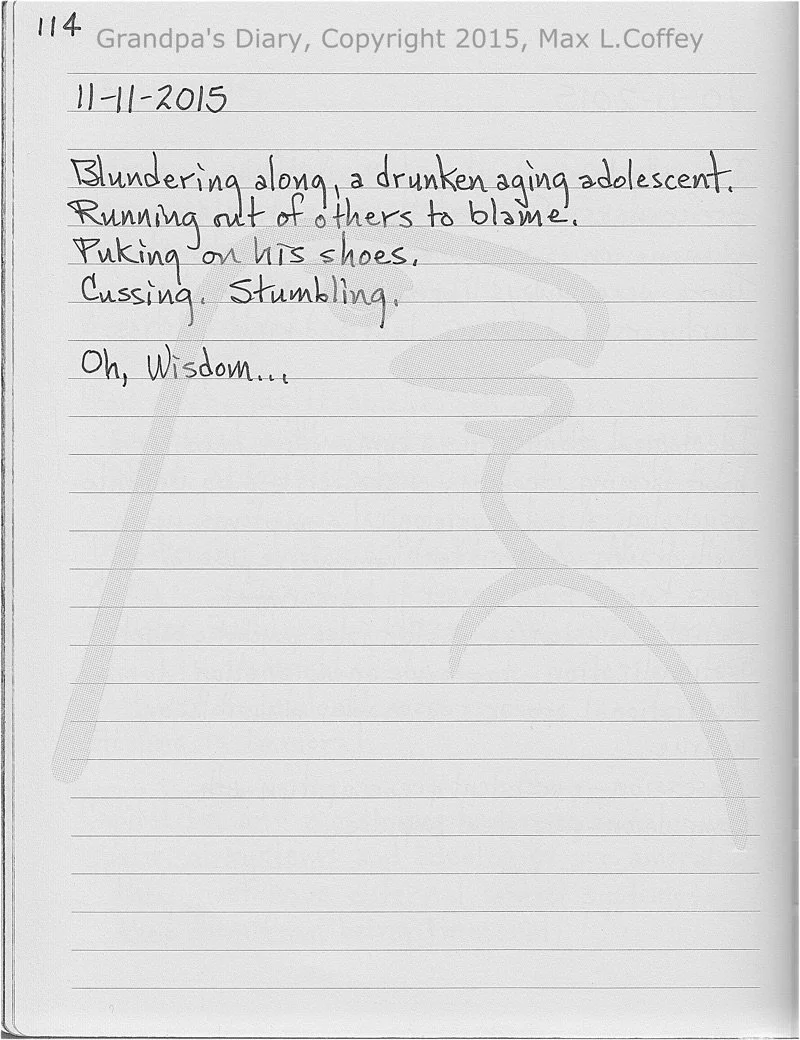 114
Grandpa's Diary, Copyright 2015, Max L.Coffey
11-11-2015
Blundering along, a drunken aging adolescent.
Running out of others to blame.
Puking on his shoes.
Cussing. Stumbling.
Oh, Wisdom...